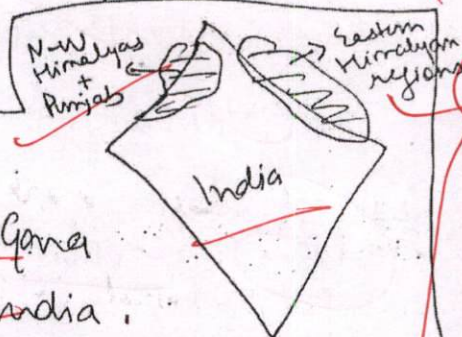 N-W
Himalyas
+
Punjab
Eastern
Himalyan
regions
India
Gana
India.